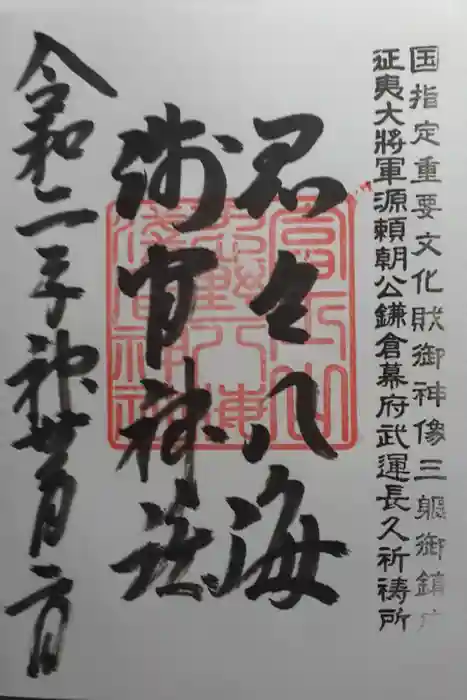 国指定重要文化財御神像三軀御鎮
征夷大將軍源頼朝公鎌倉幕府武運長久祈祷所
忍野八海
浅間神社
富士山
忍野八海
浅間神社
令和二年神無月